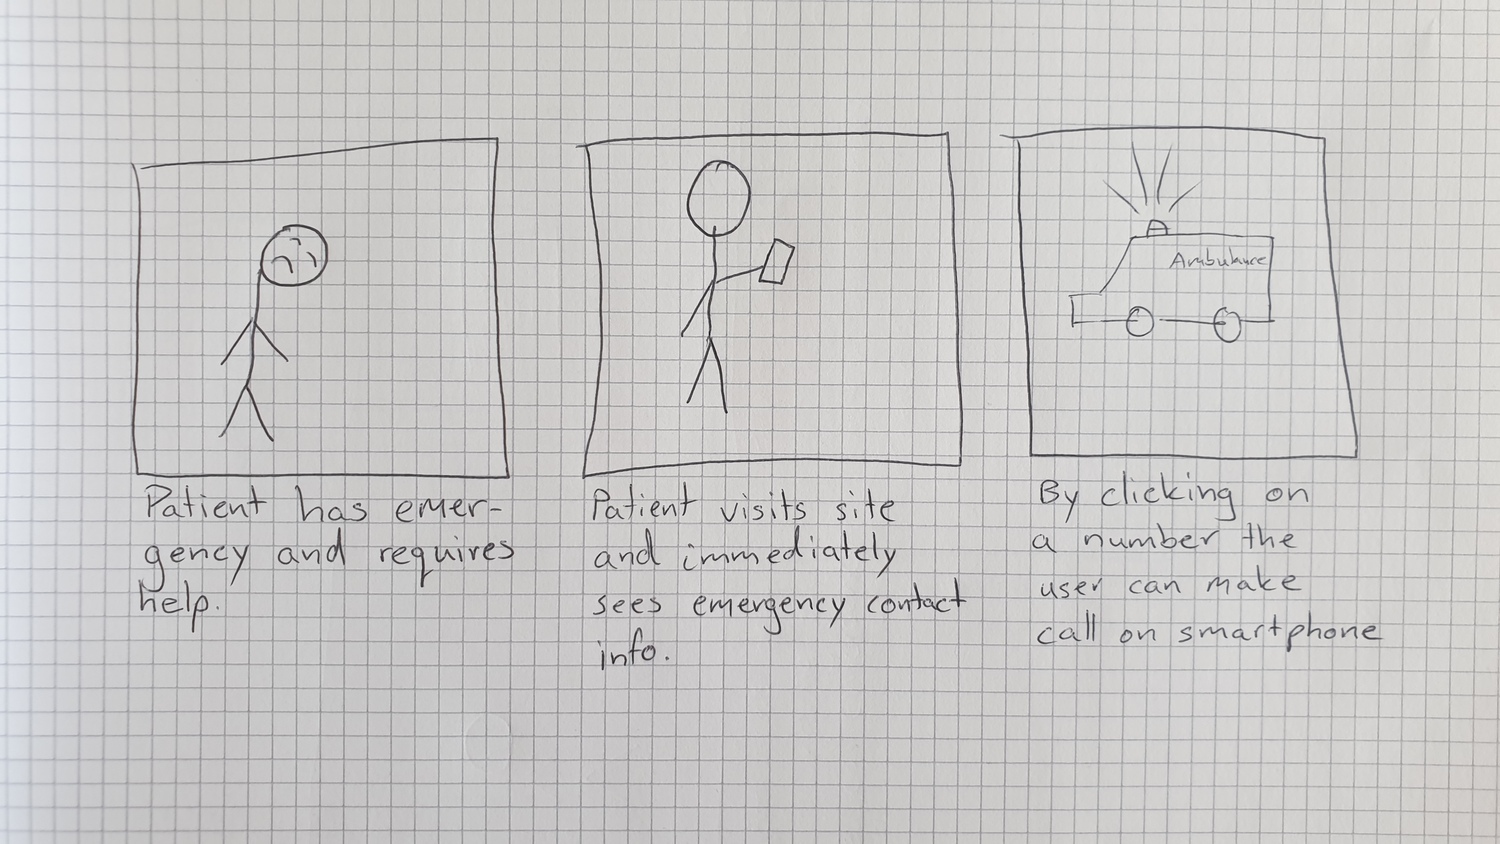 Ambulance
Patient has emer-
gency and requires
help.
Patient visits site
and immediately
sees emergency contact
info.
By clicking on
a number the
user can make
call on smartphone